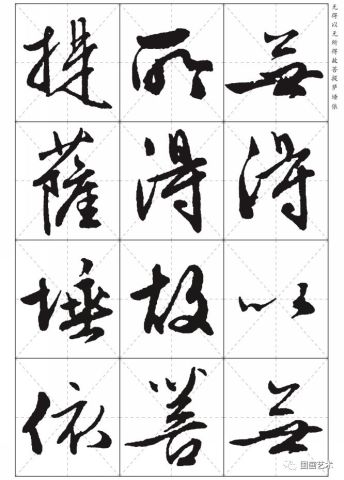 无得以无所得故菩提萨埵依
無得以無
所得故菩
提薩埵依
国画艺术